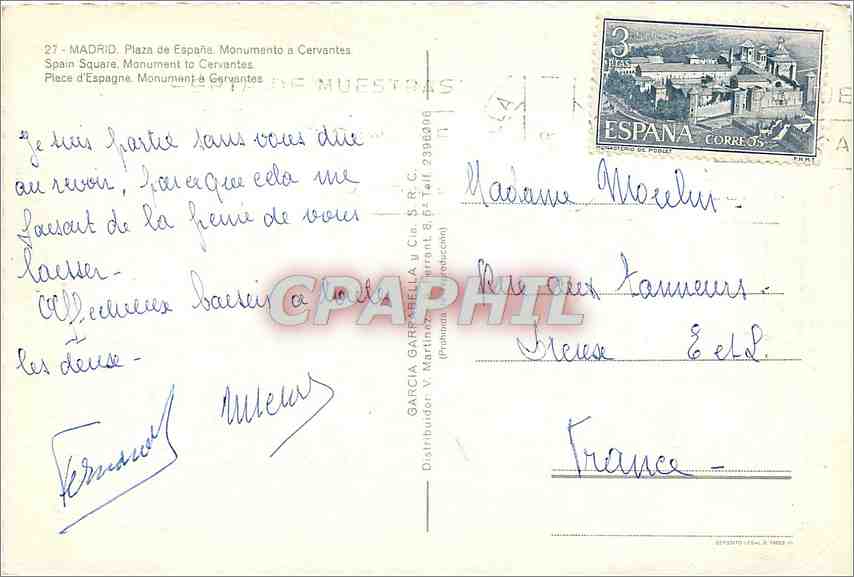 27 - MADRID. Plaza de España. Monumento a Cervantes
Spain Square. Monument to Cervantes.
Place d'Espagne. Monument à Cervantes
DE MUESTRAS
Je suis partie sans vous dire
au revoir, parceque cela me
faisait de la peine de vous
laisser -
Affectueux baisers a toutes
les deux -
Fernand
GARCIA GARRABELLA y Cia. S. R. C.
Distribuidor: V. Martinez, Ferrant, 8, 6ª Telf. 2396096
(Prohibida reproducción)
CPAPHIL
3
PTAS
ESPAÑA CORREOS
MONASTERIO DE POBLET F.N.M.T.
Madame Moulin -
Rue aux tanneurs -
Dreux E et L.
France -
DEPÓSITO LEGAL B.